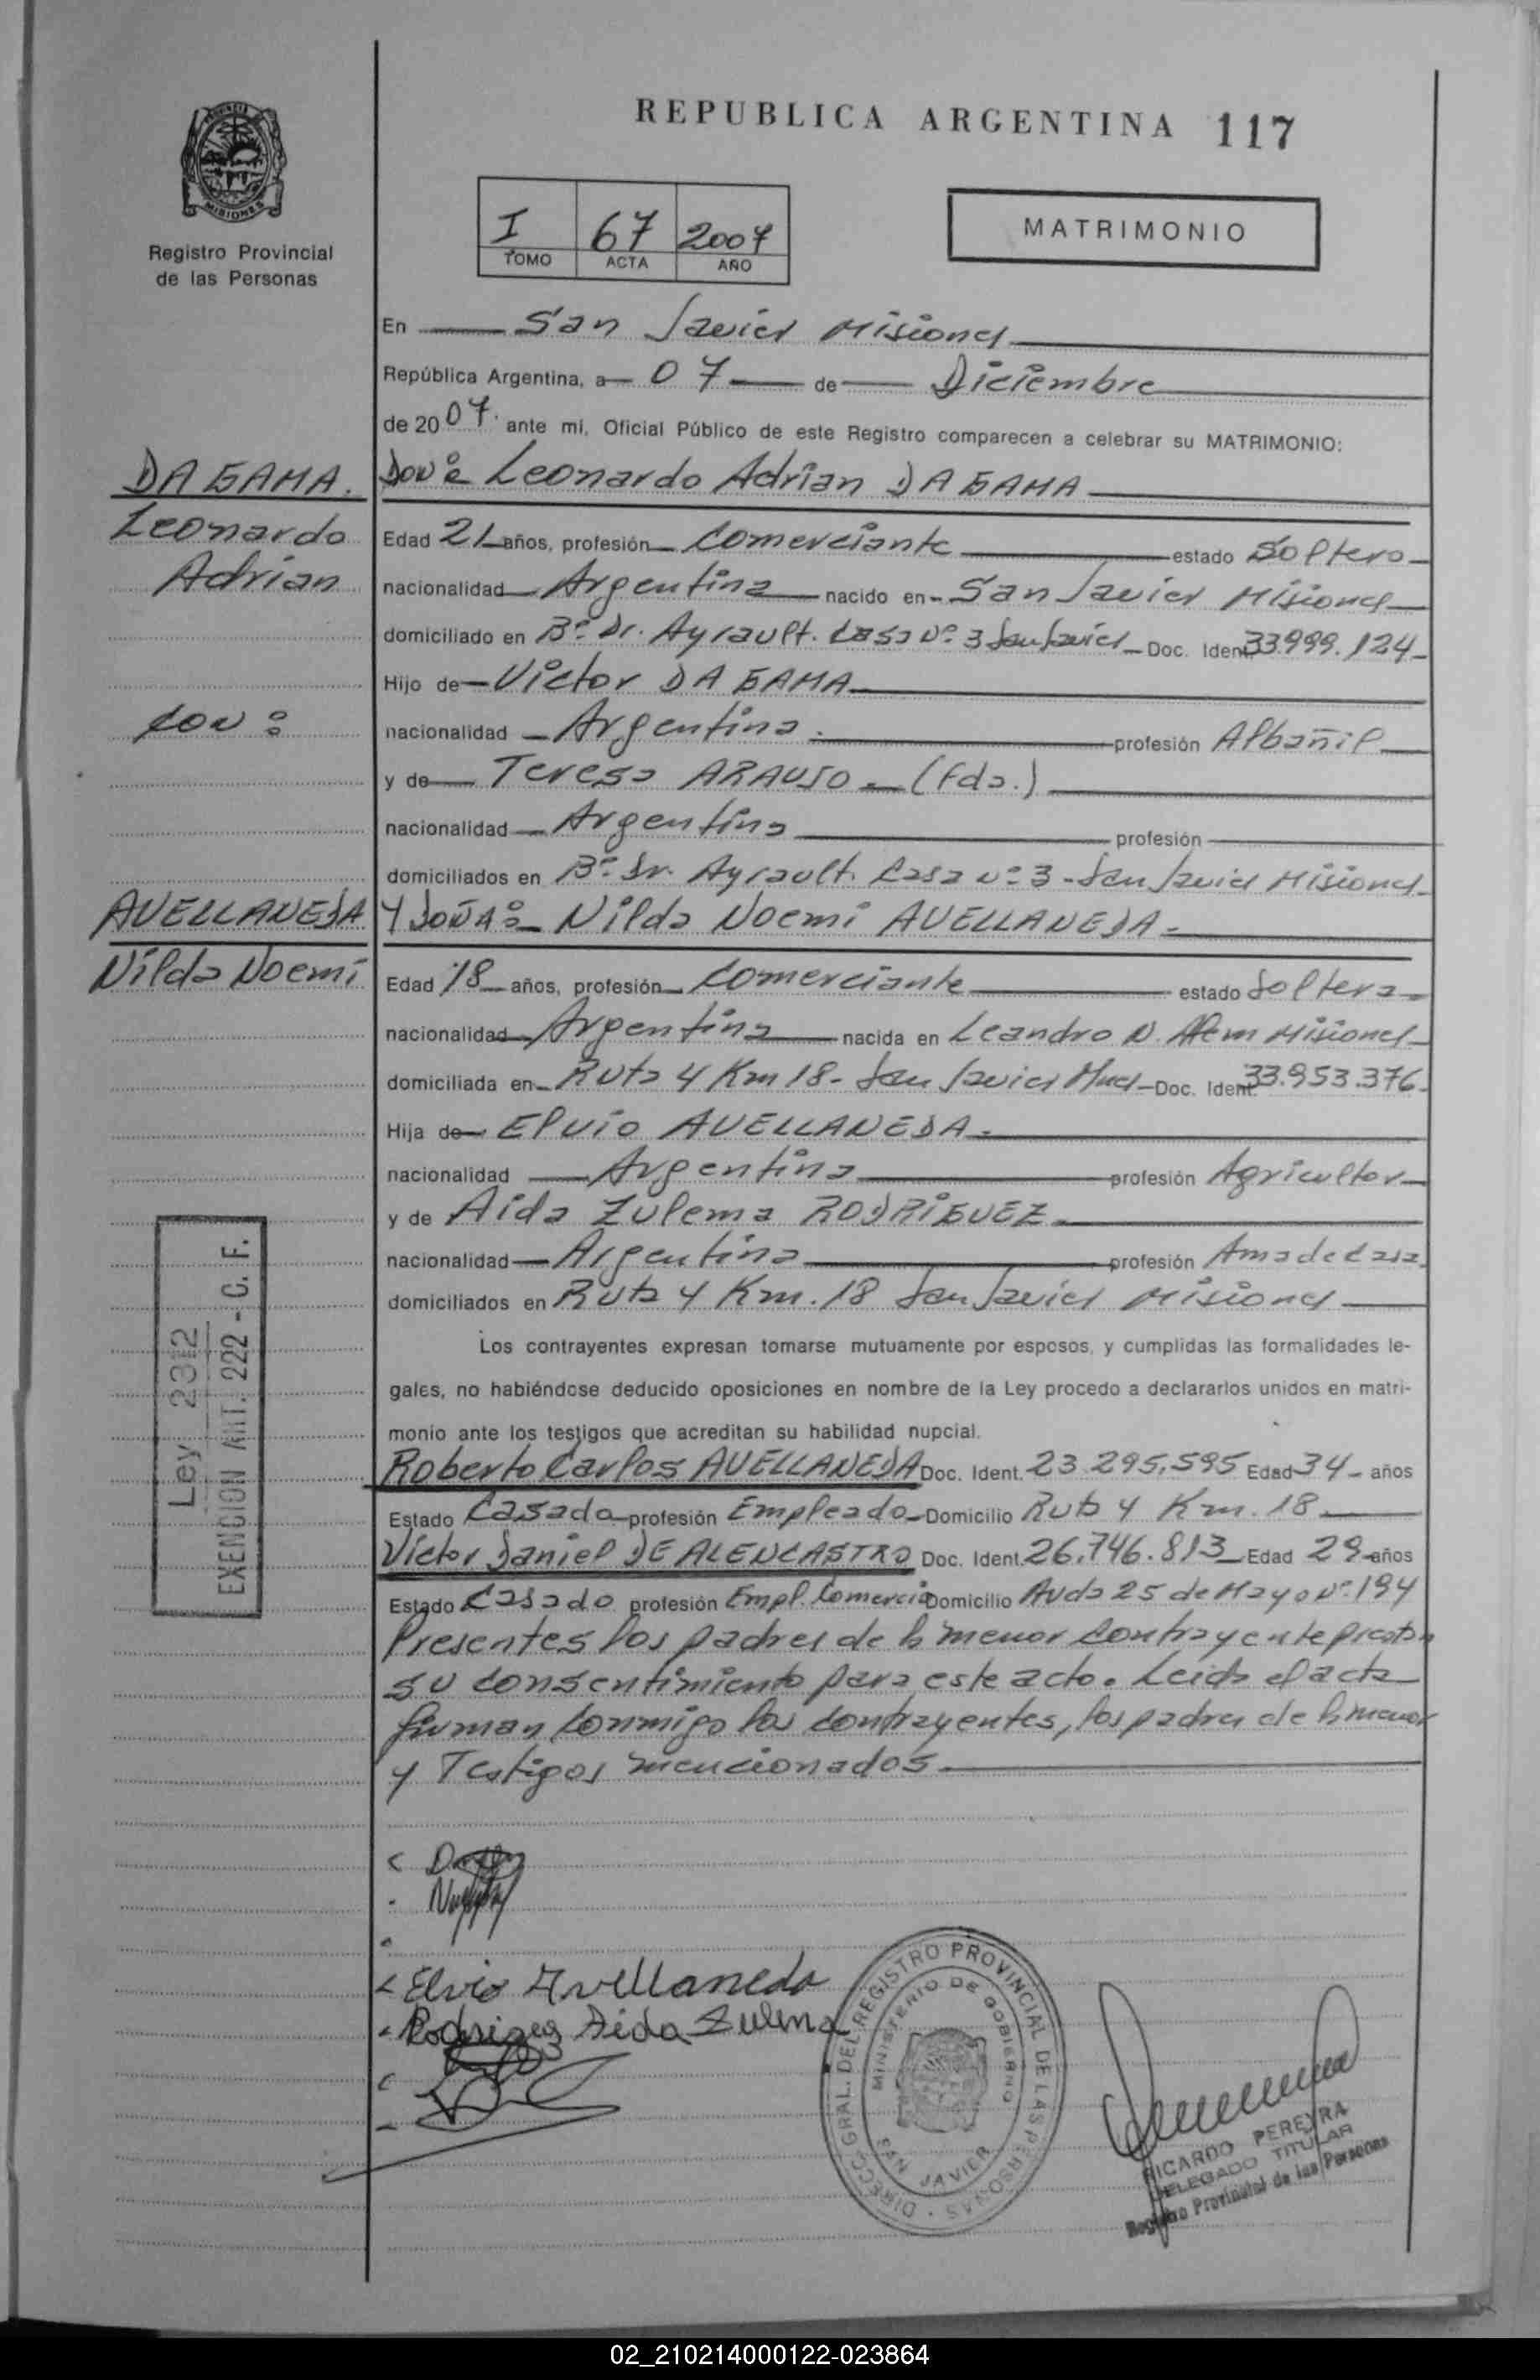 REPUBLICA ARGENTINA 117
MISIONES
Registro Provincial
de las Personas
I 67 2007
TOMO ACTA AÑO
MATRIMONIO
En San Javier Misiones
República Argentina, a 07 de Diciembre
de 2007. ante mi, Oficial Público de este Registro comparecen a celebrar su MATRIMONIO:
DA GAMA.
Leonardo
Adrian
con:
AVELLANEDA
Nilda Noemi
Don: Leonardo Adrian DA GAMA
Edad 21 años, profesión Comerciante estado Soltero
nacionalidad Argentina nacido en San Javier Misiones
domiciliado en Bº. Dr. Ayrault. Casa Nº. 3 San Javier Doc. Ident. 33.999.124
Hijo de Victor DA GAMA
nacionalidad Argentina. profesión Albañil
y de Teresa ARAUJO (Fda.)
nacionalidad Argentina profesión
domiciliados en Bº. Dr. Ayrault. Casa Nº 3 - San Javier Misiones
Y DOÑA: Nilda Noemi AVELLANEDA.
Edad 18 años, profesión Comerciante estado Soltera
nacionalidad Argentina nacida en Leandro N. Alem Misiones
domiciliada en Ruta 4 Km 18 - San Javier Mnes Doc. Ident. 33.953.376.
Hija de Elvio AVELLANEDA.
nacionalidad Argentina profesión Agricultor
y de Aida Zulema RODRIGUEZ.
nacionalidad Argentina profesión Ama de Casa.
domiciliados en Ruta 4 Km. 18 San Javier Misiones
Los contrayentes expresan tomarse mutuamente por esposos, y cumplidas las formalidades le-
gales, no habiéndose deducido oposiciones en nombre de la Ley procedo a declararlos unidos en matri-
monio ante los testigos que acreditan su habilidad nupcial.
Roberto Carlos AVELLANEDA Doc. Ident. 23.295.595 Edad 34 años
Estado Casado profesión Empleado Domicilio Ruta 4 Km. 18
Victor Daniel DE ALENCASTRO Doc. Ident. 26.746.813 Edad 29 años
Estado Casado profesión Empl. Comercio Domicilio Avda 25 de Mayo Nº. 194
Presentes los padres de la menor contrayente prestan
su consentimiento para este acto. Leida el acta
firman conmigo los contrayentes, los padres de la menor
y Testigos mencionados.
Ley 2312
EXENCION ART. 222 - C. F.
Elvio Avellaneda
Rodriguez Aida Zulema
DIRECC. GRAL. DEL REGISTRO PROVINCIAL DE LAS PERSONAS
MINISTERIO DE GOBIERNO
SAN JAVIER
RICARDO PEREYRA
DELEGADO TITULAR
Registro Provincial de las Personas
02_210214000122-023864